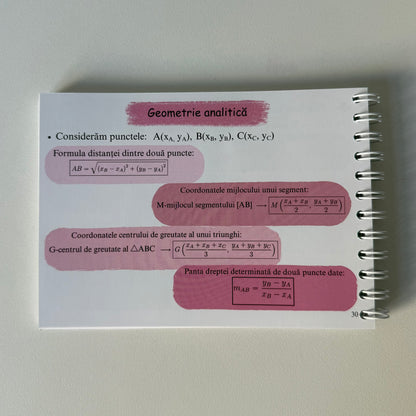 Geometrie analitică
• Considerăm punctele: A(x_A, y_A), B(x_B, y_B), C(x_C, y_C)
Formula distanței dintre două puncte:
AB = √((x_B − x_A)² + (y_B − y_A)²)
Coordonatele mijlocului unui segment:
M-mijlocul segmentului [AB] → M((x_A + x_B)/2, (y_A + y_B)/2)
Coordonatele centrului de greutate al unui triunghi:
G-centrul de greutate al △ABC → G((x_A + x_B + x_C)/3, (y_A + y_B + y_C)/3)
Panta dreptei determinată de două puncte date:
m_AB = (y_B − y_A)/(x_B − x_A)
30